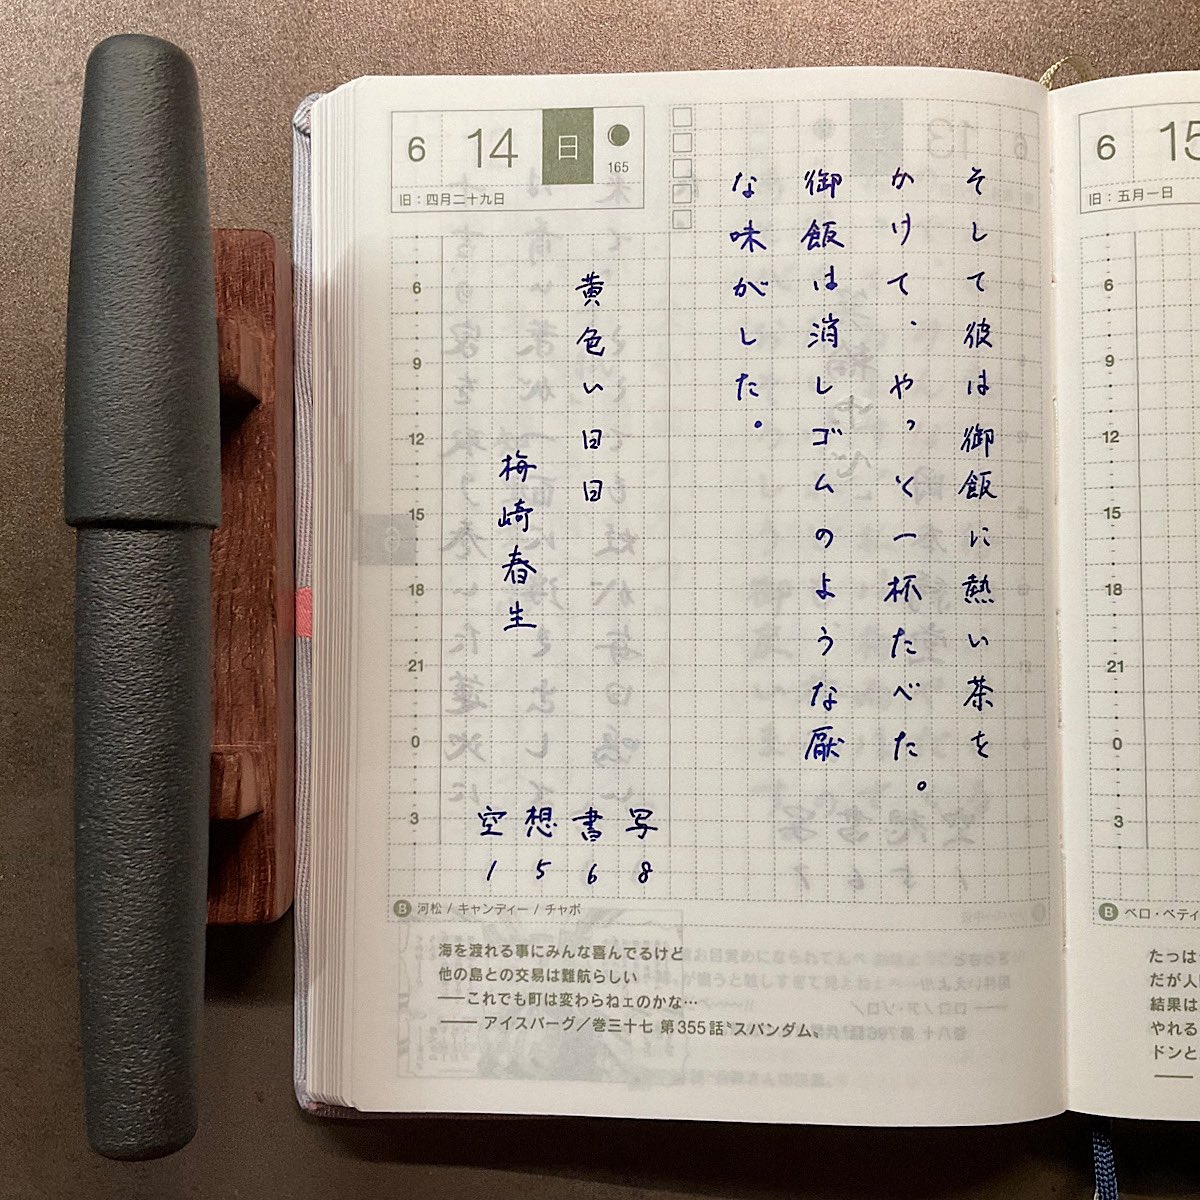 6 14 日
165
旧：四月二十九日
そして彼は御飯に熱い茶を
かけて、やっく一杯たべた。
御飯は消しゴムのような厭
な味がした。
黄色い日日
梅崎春生
空想書写
1568
6
9
12
15
18
21
0
3
B 河松 / キャンディー / チャボ
海を渡れる事にみんな喜んでるけど
他の島との交易は難航らしい
――これでも町は変わらねェのかな…
―― アイスバーグ／巻三十七 第355話〝スパンダム〟
6 15
旧：五月一日
6
9
12
15
18
21
0
3
B ベロ・ベティ
たっは
だが人
結果は
やれる
ドンと